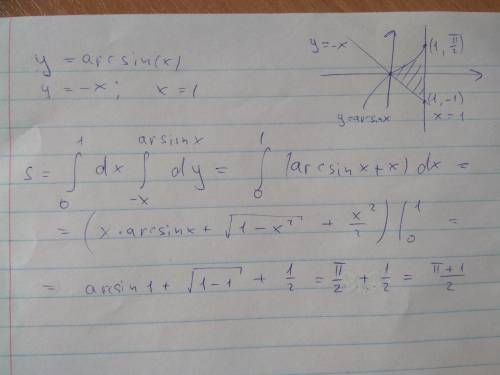 y = arcsin(x)
y = -x; x = 1
y=-x
(1, π/2)
(1, -1)
x = 1
y=arsinx
S = ∫₀¹ dx ∫₋ₓ^(arsinx) dy = ∫₀¹ (arcsinx + x) dx =
= (x · arcsinx + √(1-x²) + x²/2) |₀¹ =
= arcsin1 + √(1-1) + 1/2 = π/2 + 1/2 = (π+1)/2